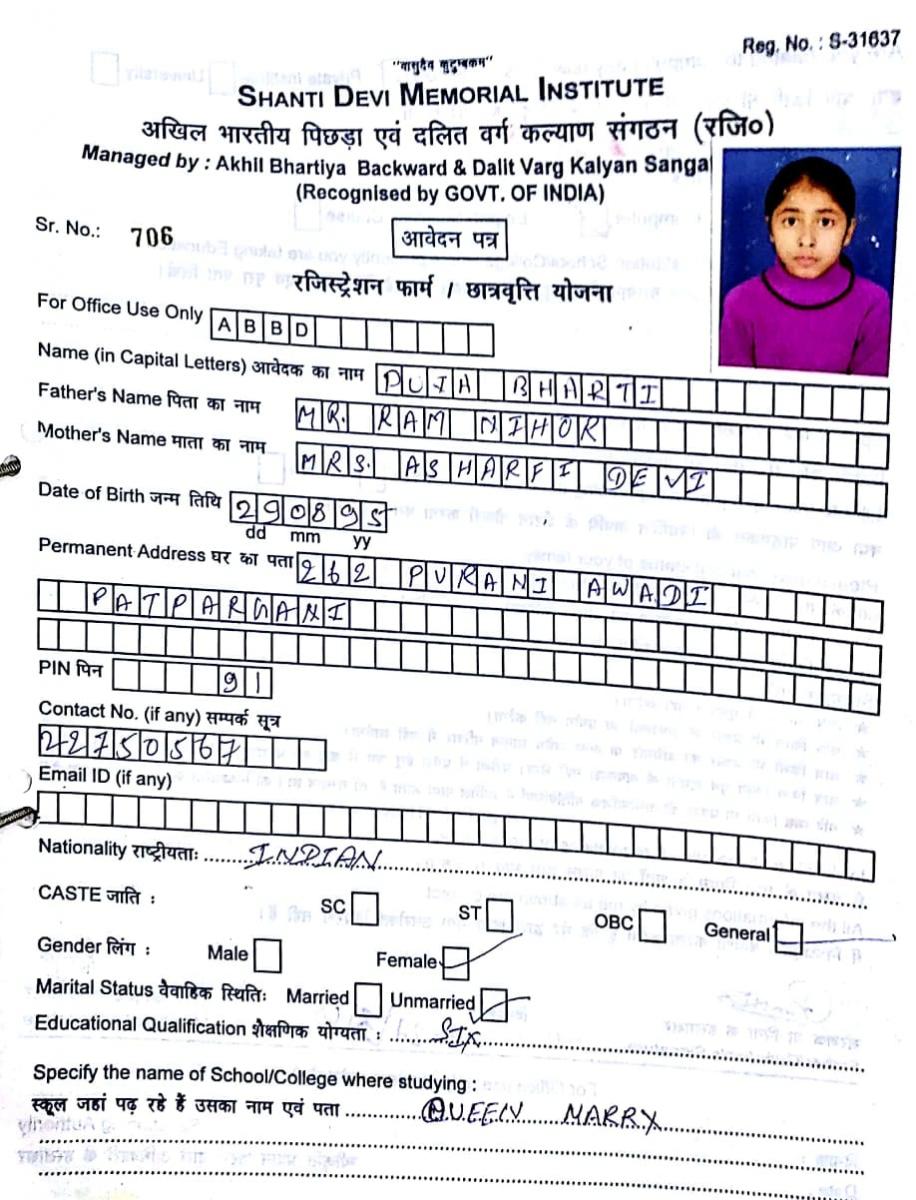 Reg. No. : S-31637
"वासुदैव कुटुम्बकम"
SHANTI DEVI MEMORIAL INSTITUTE
अखिल भारतीय पिछड़ा एवं दलित वर्ग कल्याण संगठन (रजि०)
Managed by : Akhil Bhartiya Backward & Dalit Varg Kalyan Sanga
(Recognised by GOVT. OF INDIA)
Sr. No.: 706
आवेदन पत्र
रजिस्ट्रेशन फार्म / छात्रवृत्ति योजना
For Office Use Only ABBD
Name (in Capital Letters) आवेदक का नाम PUJA BHARTI
Father's Name पिता का नाम MR. RAM NIHOR
Mother's Name माता का नाम MRS. ASHARFI DEVI
Date of Birth जन्म तिथि 290895
dd mm yy
Permanent Address घर का पता 262 PURANI AWADI
PATPARGANJ
PIN पिन 91
Contact No. (if any) सम्पर्क सूत्र
22750567
Email ID (if any)
Nationality राष्ट्रीयताः INDIAN
CASTE जाति : SC ST OBC General
Gender लिंग : Male Female
Marital Status वैवाहिक स्थितिः Married Unmarried
Educational Qualification शैक्षणिक योग्यता : SIX
Specify the name of School/College where studying :
स्कूल जहां पढ़ रहे हैं उसका नाम एवं पता QUEELY MARRY